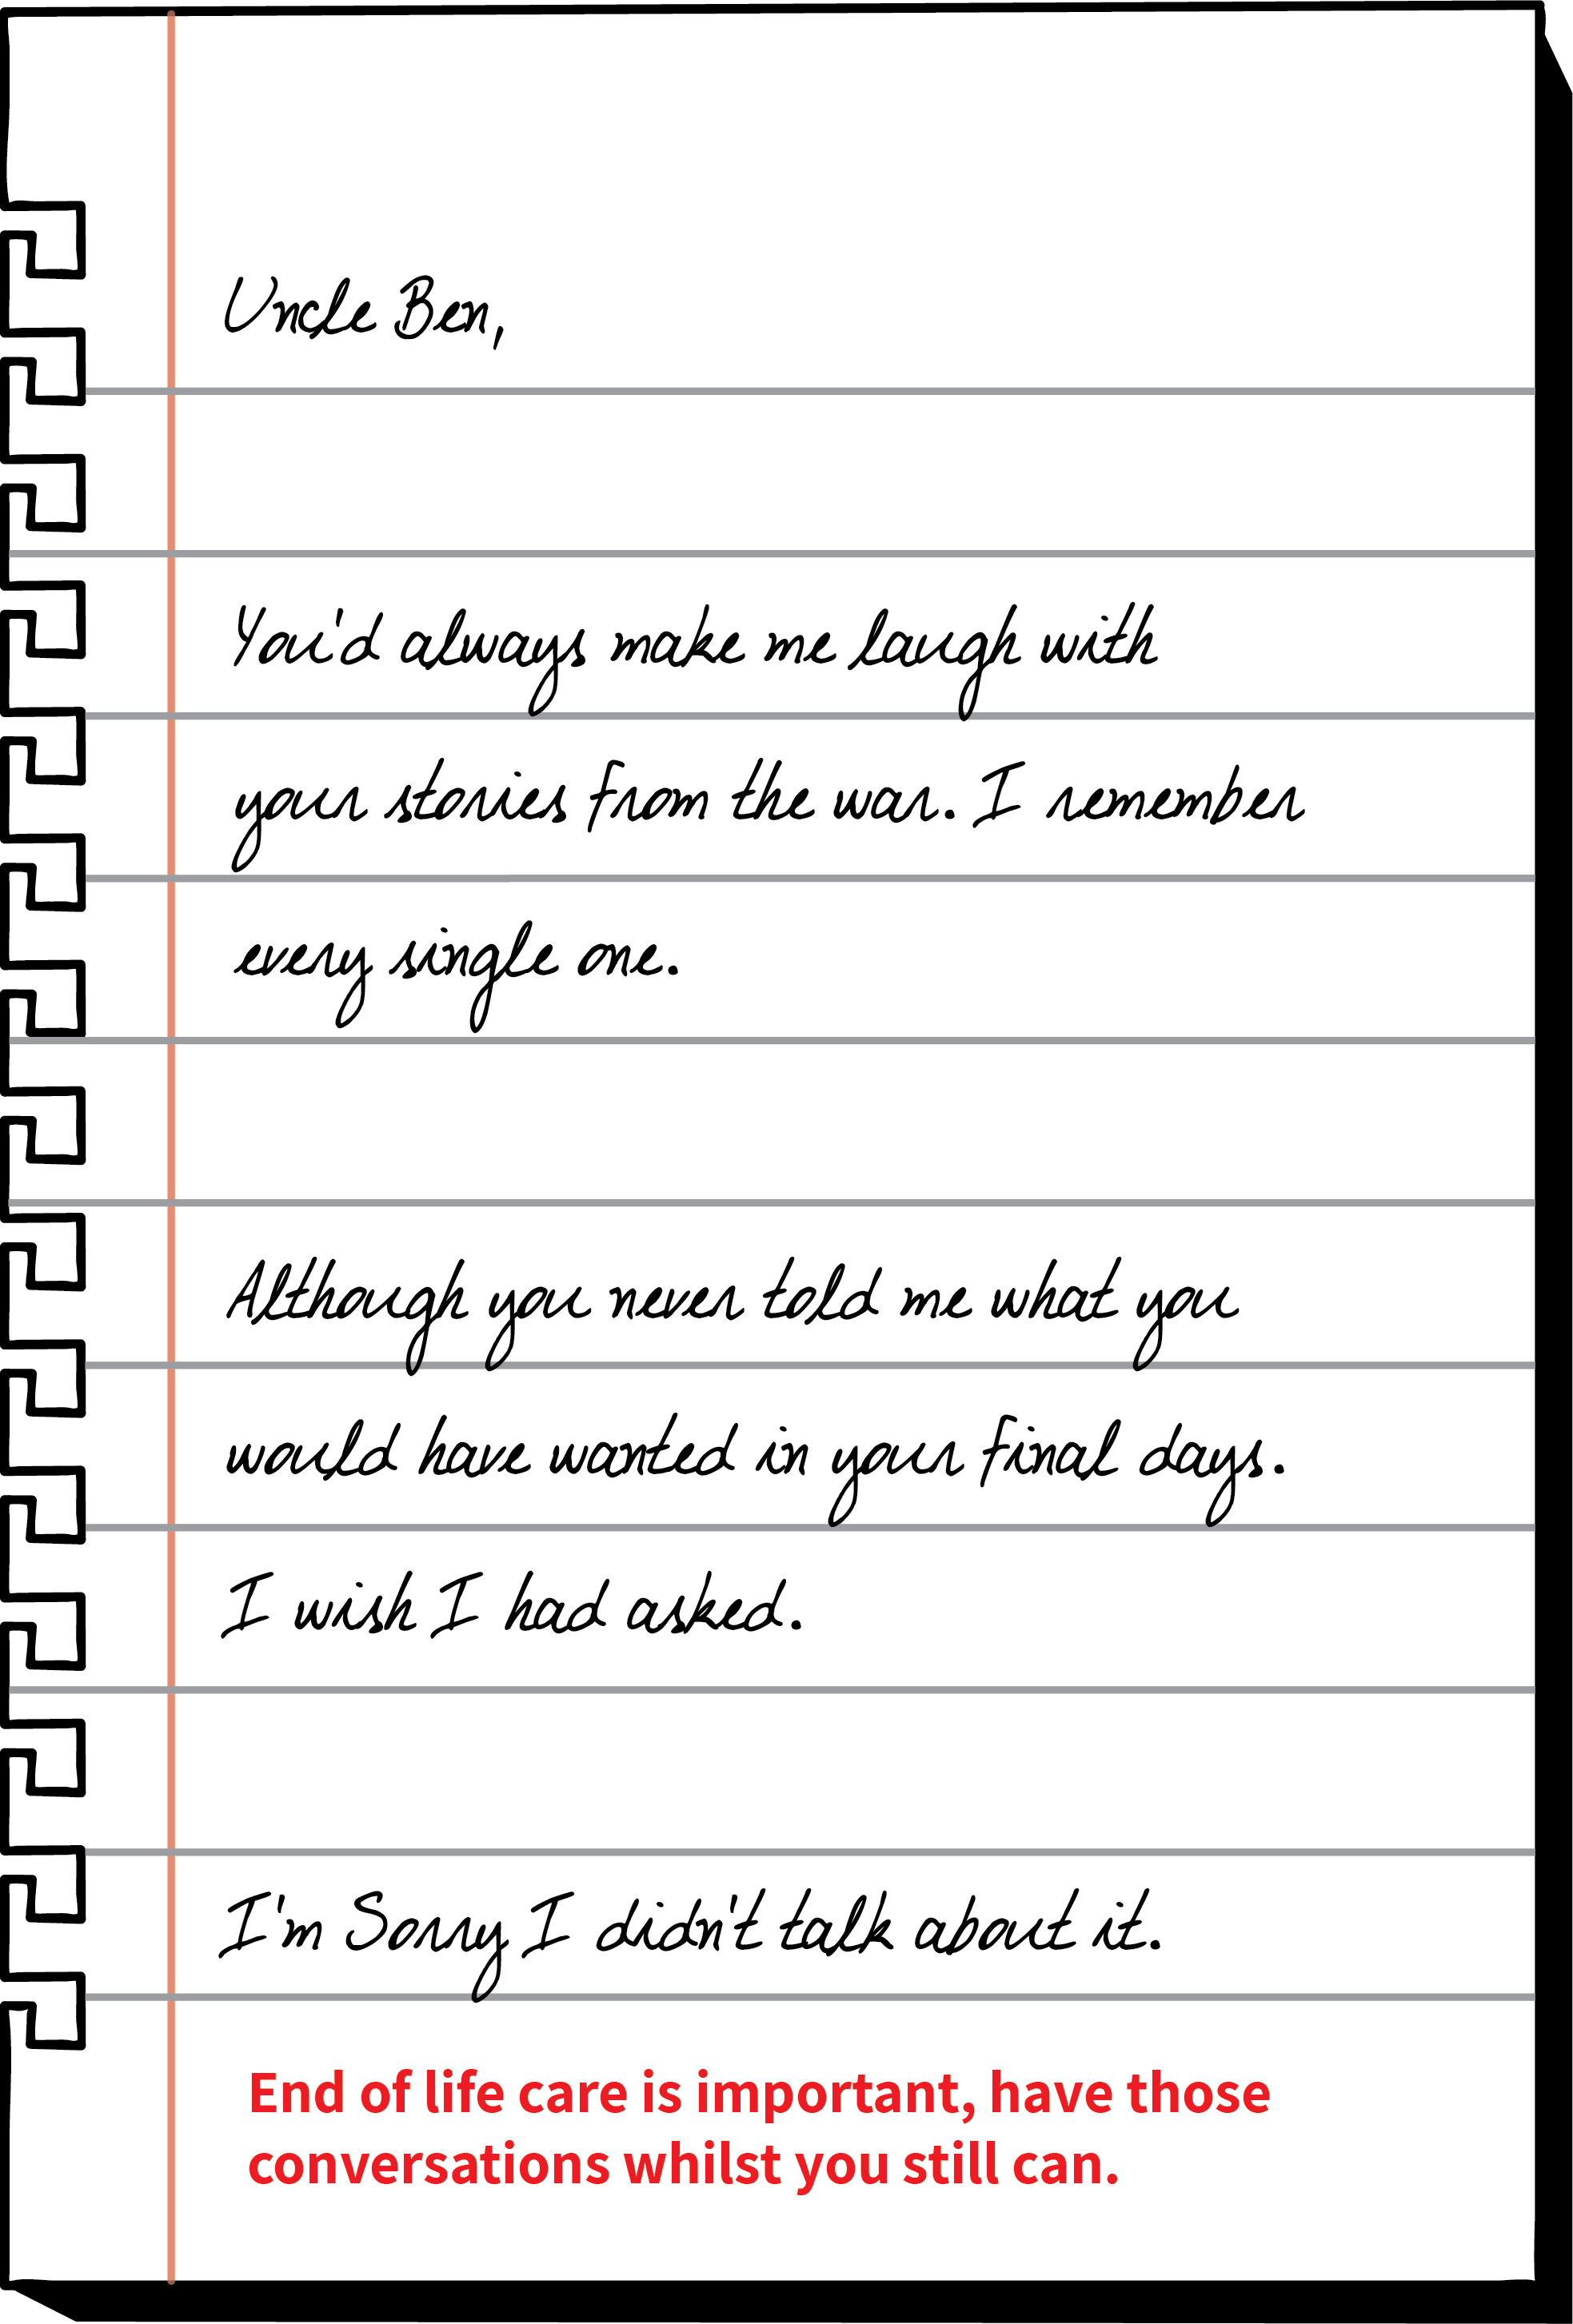 Uncle Ben,
You'd always make me laugh with
your stories from the war. I remember
every single one.
Although you never told me what you
would have wanted in your final days.
I wish I had asked.
I'm Sorry I didn't talk about it.
End of life care is important, have those
conversations whilst you still can.